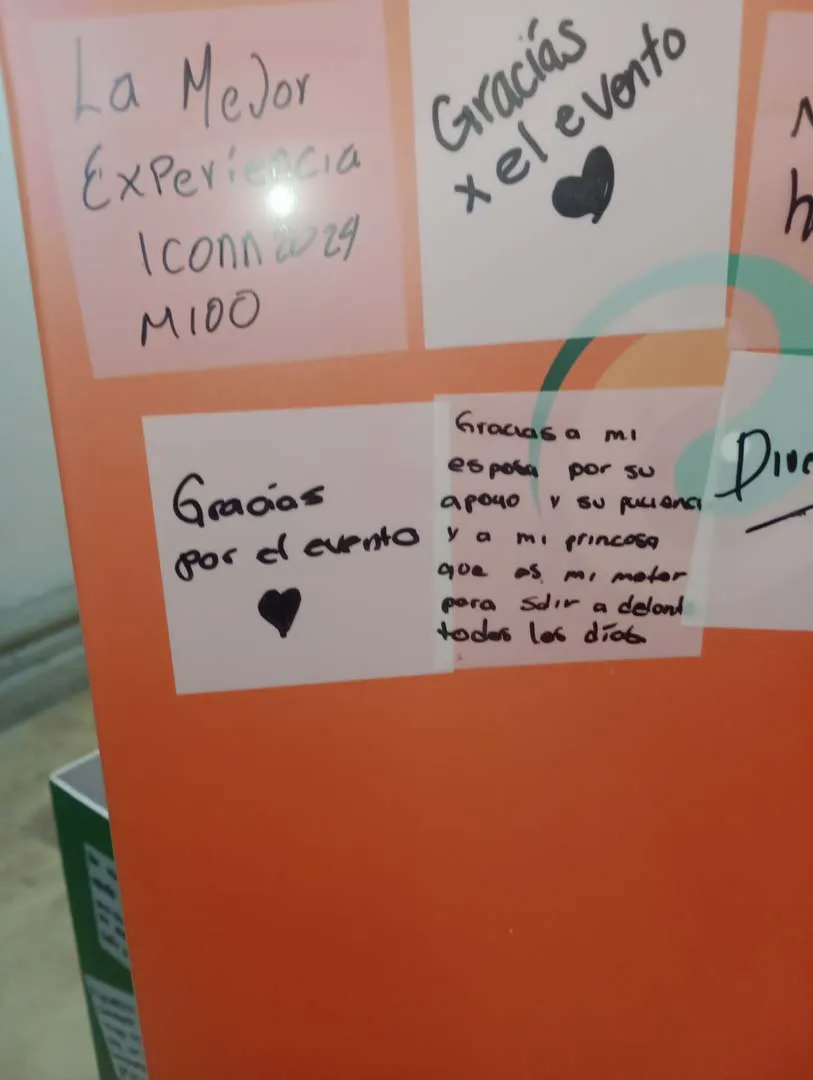 La MeJor
ExPeriencia
Iconn 2024
M100
Gracias
x el evento
Gracias
por el evento
Gracias a mi
esposa por su
apoyo y su
y a mi princesa
que es mi motor
para salir a delant
todos los días